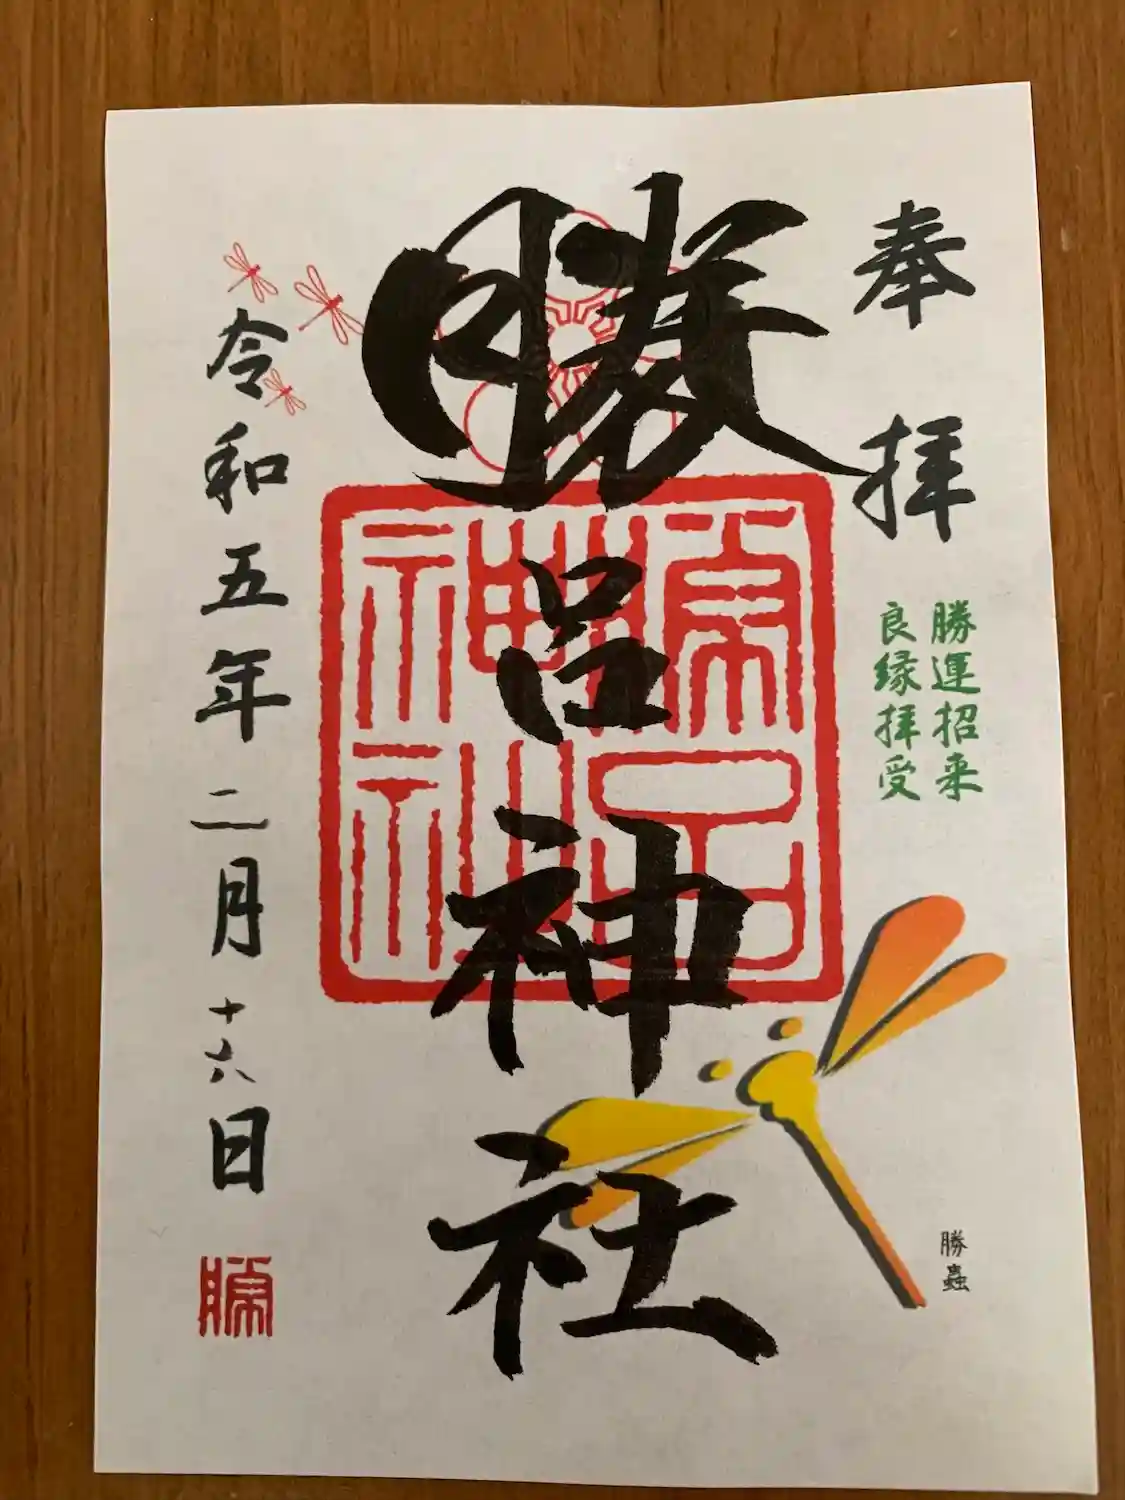 奉拝
勝運招来
良縁拝受
勝呂神社
令和五年二月十六日
勝蟲